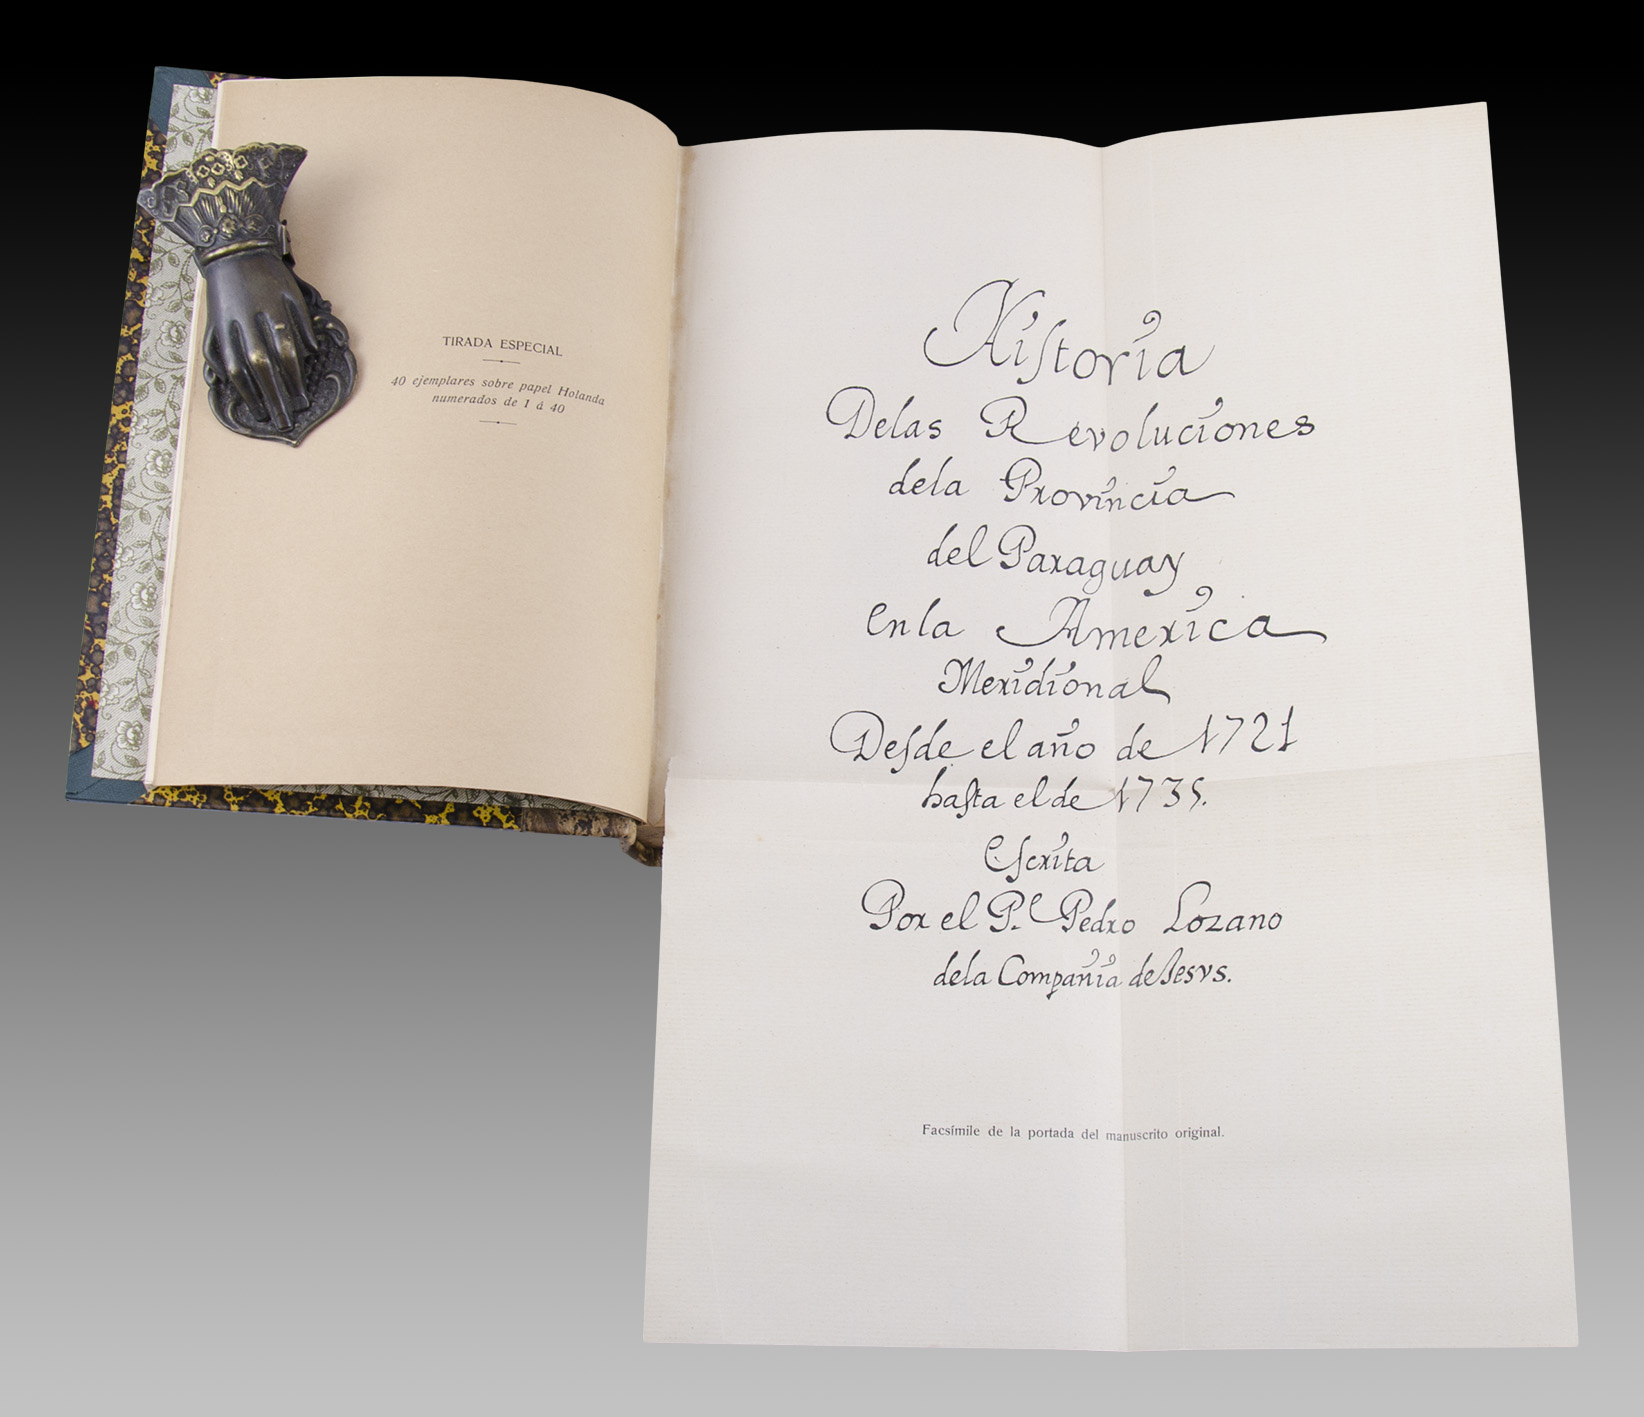 TIRADA ESPECIAL
40 ejemplares sobre papel Holanda
numerados de 1 á 40
Hiſtoria
Delas Revoluciones
dela Provincia
del Paraguay
en la America
Meridional
Deſde el año de 1721
haſta el de 1735.
Eſcrita
Por el P.e Pedro Lozano
dela Compañia de Jesvs.
Facsímile de la portada del manuscrito original.